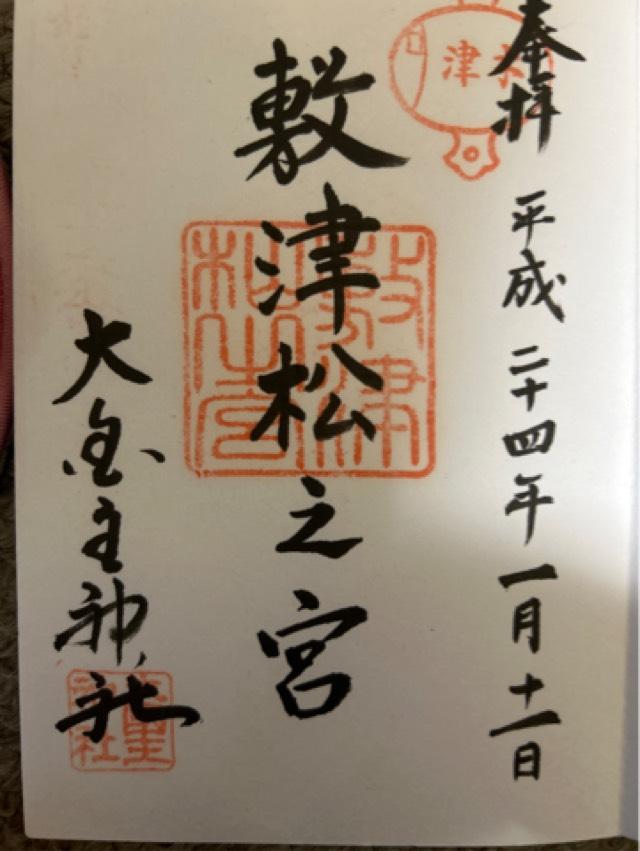 奉拝
平成二十四年一月十一日
敷津松之宮
大国主神社
敷津松之宮